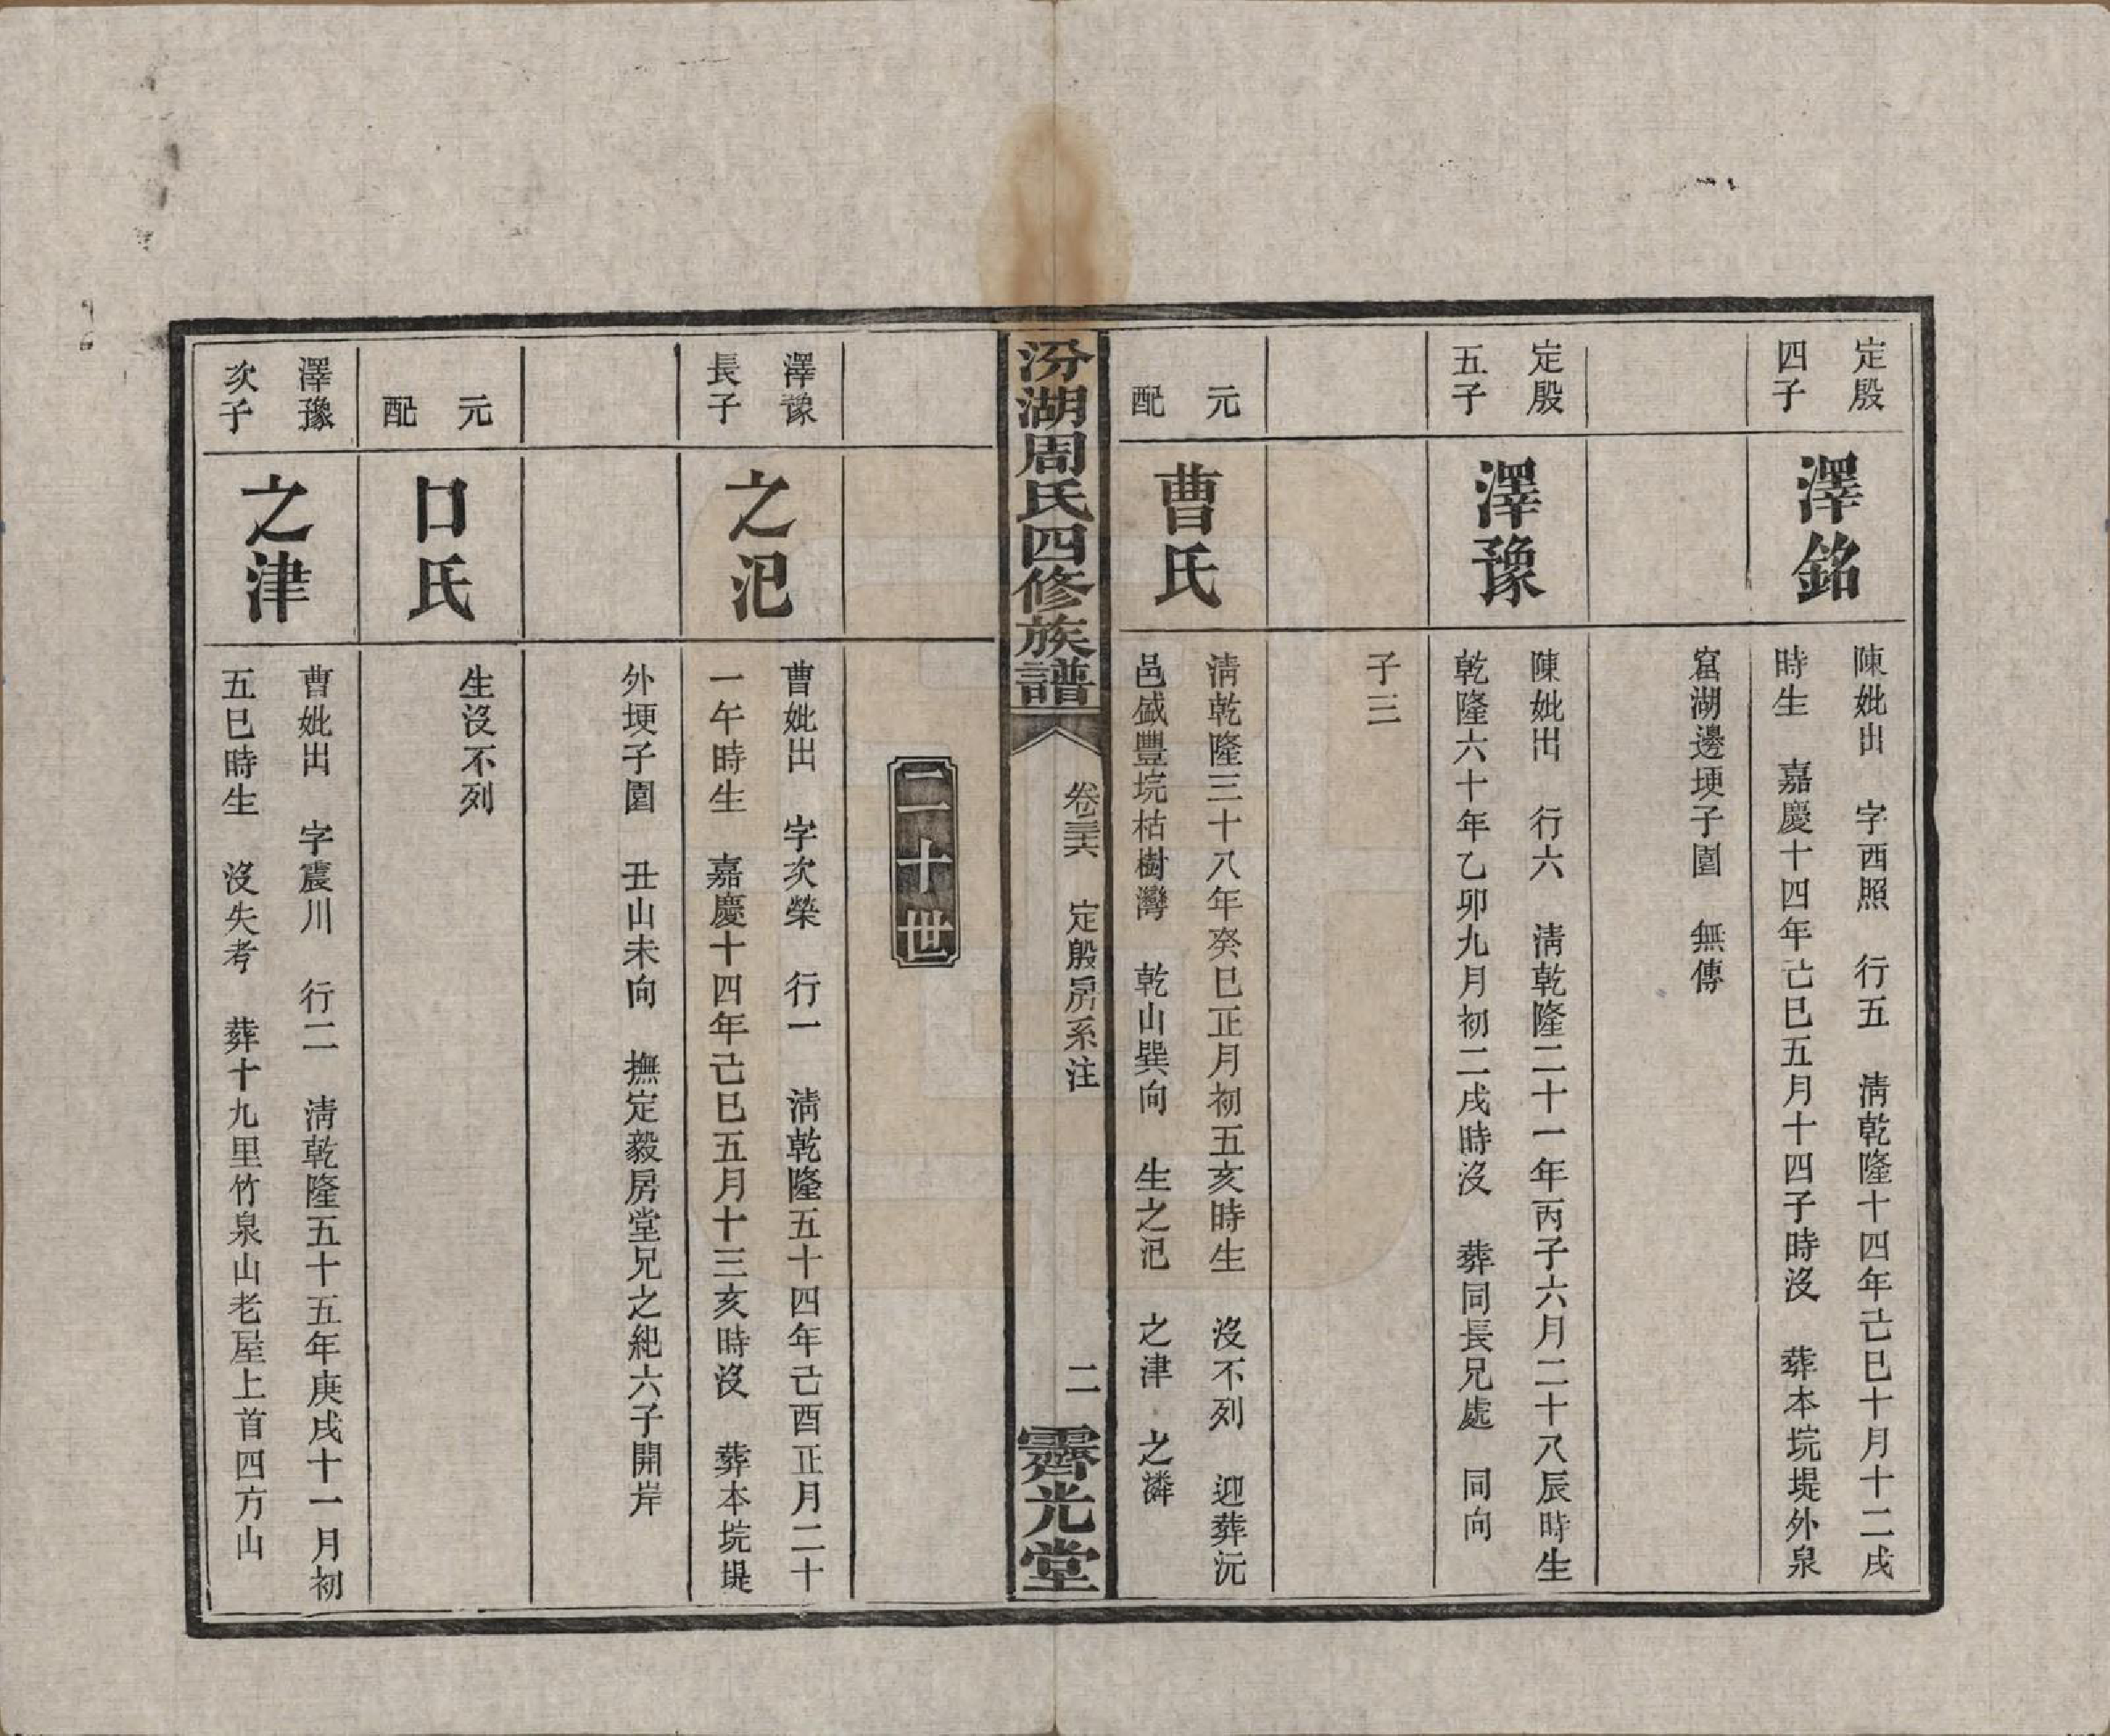 定殷
四子
澤銘
陳妣出　字西照　行五　淸乾隆十四年己巳十月十二戌
時生　嘉慶十四年己巳五月十四子時沒　葬本垸堤外泉
窟湖邊埂子園　無傳
定殷
五子
澤豫
陳妣出　行六　淸乾隆二十一年丙子六月二十八辰時生
乾隆六十年乙卯九月初二戌時沒　葬同長兄處　同向
子三
元
配
曹氏
淸乾隆三十八年癸巳正月初五亥時生　沒不列　迎葬沅
邑盛豐垸枯樹灣　乾山巽向　生之汜　之津　之潾
汾湖周氏四修族譜
卷三十六　定殷房系注
二
霽光堂
二十世
澤豫
長子
之汜
曹妣出　字次榮　行一　淸乾隆五十四年己酉正月二十
一午時生　嘉慶十四年己巳五月十三亥時沒　葬本垸堤
外埂子園　丑山未向　撫定毅房堂兄之紀六子開岸
元
配
口氏
生沒不列
澤豫
次子
之津
曹妣出　字震川　行二　淸乾隆五十五年庚戌十一月初
五巳時生　沒失考　葬十九里竹泉山老屋上首四方山